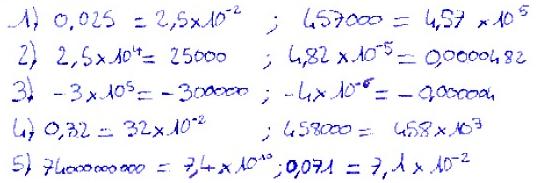 1) 0,025 = 2,5x10⁻² ; 457000 = 4,57 x10⁵
2) 2,5x10⁴ = 25000 ; 4,82 x10⁻⁵ = 0,0000482
3) -3x10⁵ = -300000 ; -4x10⁻⁶ = -0,000004
4) 0,32 = 32x10⁻² ; 458000 = 458x10³
5) 74000000000 = 7,4x10¹⁰ ; 0,071 = 7,1x10⁻²